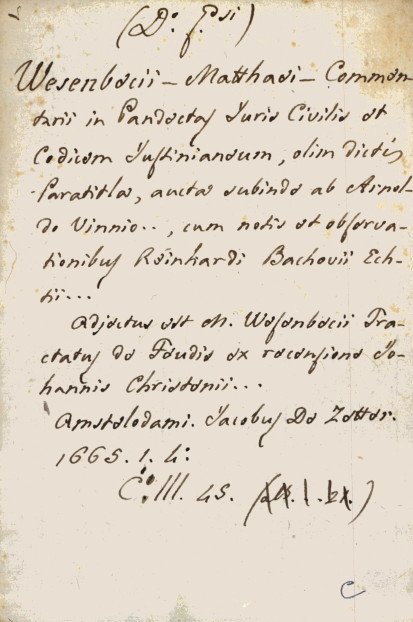 (D: f. Psi)
Wesenbecii – Matthaei – Commen-
tarii in Pandectas Juris Civilis et
Codicem Justinianeum, olim dictis
Paratitla, auctae subinde ab Arnol-
do Vinnio.., cum notis et observa-
tionibus Reinhardi Bachovii Ech-
tii...
Adjectus est M. Wesenbecii Tra-
ctatus de Feudis ex recensione Jo-
hannis Christenii...
Amstelodami. Jacobus De Zetter.
1665. 1. 4:
C. III. 45.
C